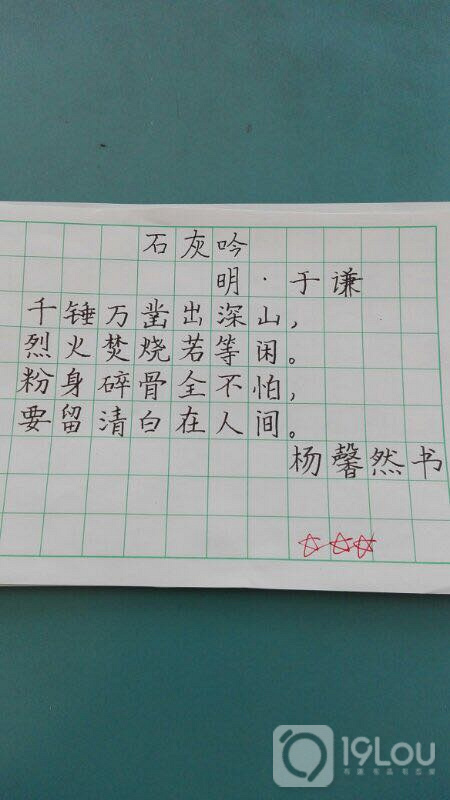 石灰吟
明·于谦
千锤万凿出深山，
烈火焚烧若等闲。
粉身碎骨全不怕，
要留清白在人间。
杨馨然书
19LOU